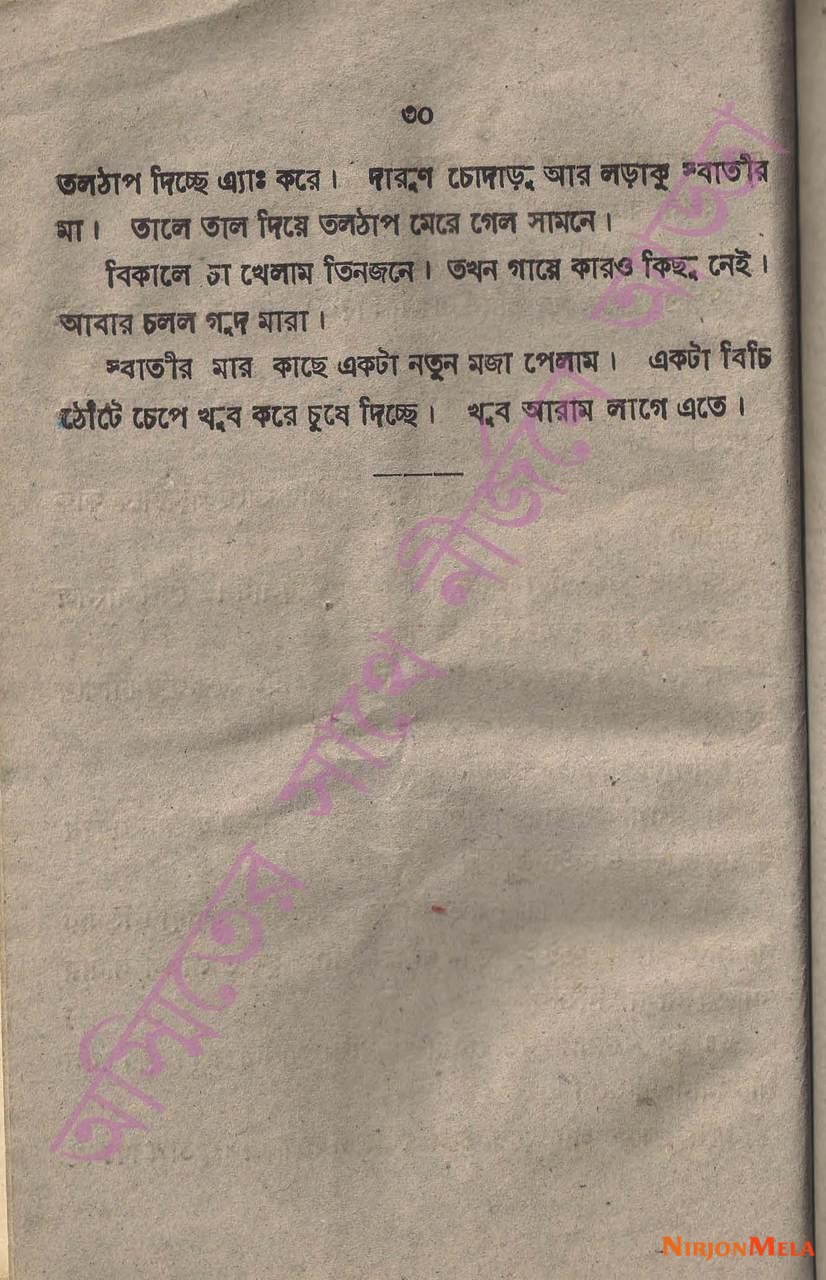 ৩০
তলঠাপ দিচ্ছে এ্যাঃ করে। দারুণ চোদাড়ু আর লড়াকু স্বাতীর
মা। তালে তাল দিয়ে তলঠাপ মেরে গেল সামনে।
বিকালে চা খেলাম তিনজনে। তখন গায়ে কারও কিছু নেই।
আবার চলল গুদ মারা।
স্বাতীর মার কাছে একটা নতুন মজা পেলাম। একটা বিচি
ঠোঁটে চেপে খুব করে চুষে দিচ্ছে। খুব আরাম লাগে এতে।
অস্মিতের সাথে নীর্জনে আড্ডা
NIRJONMELA